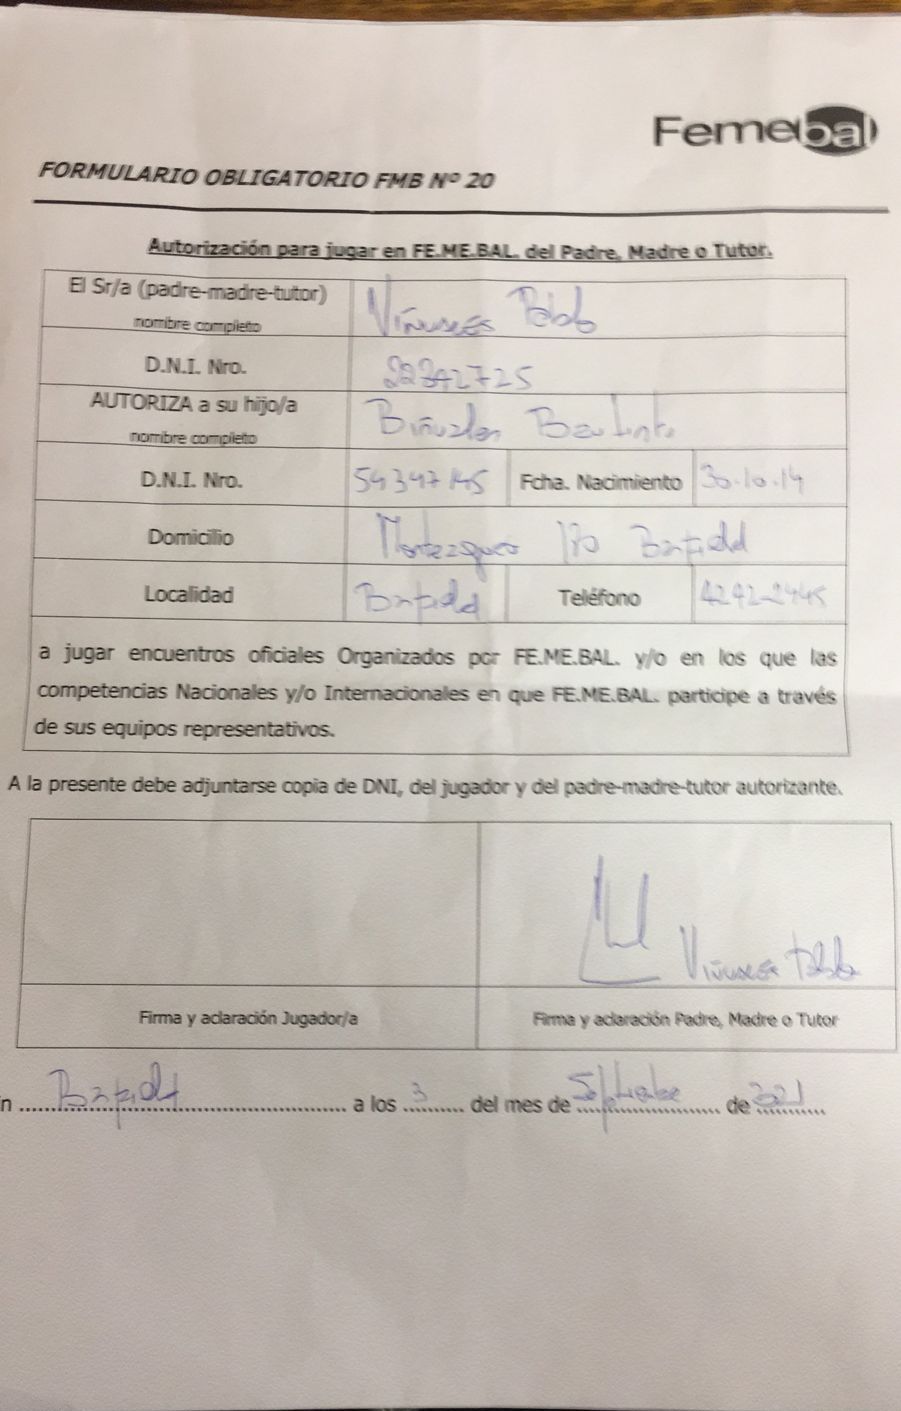 Femebal
FORMULARIO OBLIGATORIO FMB Nº 20
Autorización para jugar en FE.ME.BAL. del Padre, Madre o Tutor.
El Sr/a (padre-madre-tutor)
nombre completo
Viñuales Pablo
D.N.I. Nro. 22342725
AUTORIZA a su hijo/a
nombre completo
Biñuales Bautista
D.N.I. Nro. 54347145 Fcha. Nacimiento 30.10.14
Domicilio 170 Banfield
Localidad Banfield Teléfono 4242-2445
a jugar encuentros oficiales Organizados por FE.ME.BAL. y/o en los que las
competencias Nacionales y/o Internacionales en que FE.ME.BAL. participe a través
de sus equipos representativos.
A la presente debe adjuntarse copia de DNI, del jugador y del padre-madre-tutor autorizante.
Viñuales Pablo
Firma y aclaración Jugador/a Firma y aclaración Padre, Madre o Tutor
n Banfield a los 3 del mes de Septiembre de 2021